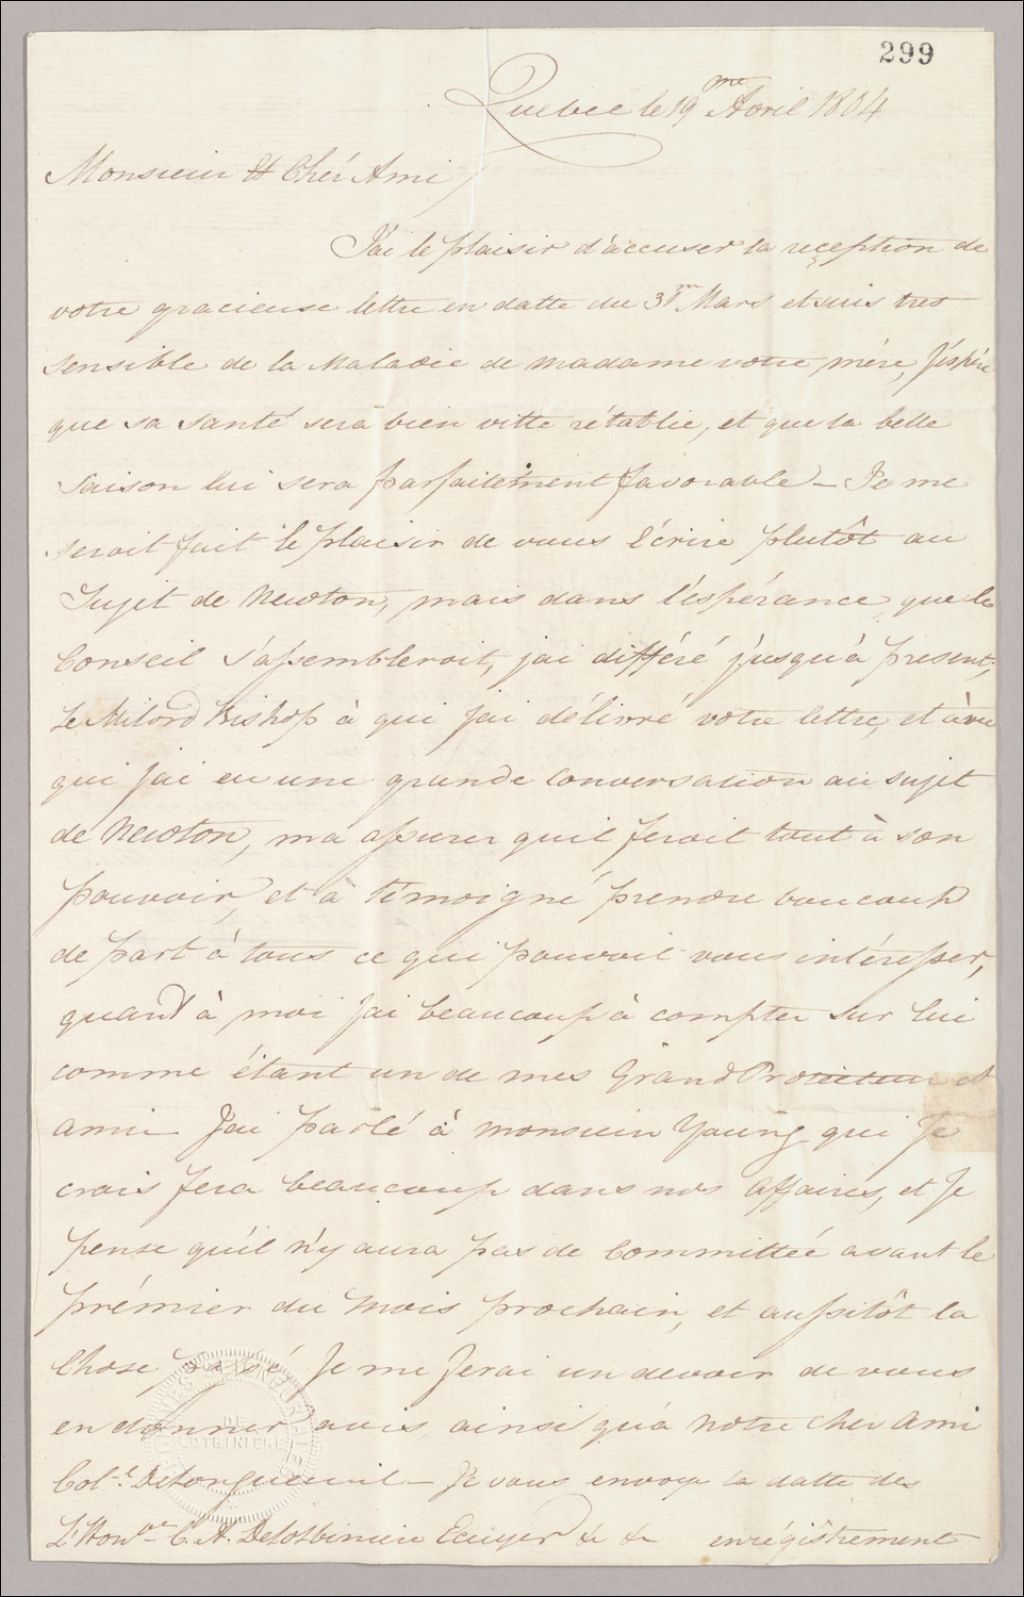 299
Quebec le 19me Avril 1804
Monsieur et Chér Ami
J'ai le plaisir d'accuser la reception de
votre gracieuse lettre en datte du 31m Mars et suis tres
sensible de la Maladie de Madame votre mére, J'éspére
que sa santé sera bien vitte rétablie, et que la belle
saison lui sera parfaitement favorable – Je me
seroit fait le plaisir de vous l'écrire plutôt au
Sujet de Newton, mais dans l'éspérance que le
Conseil s'assembleroit, j'ai différé j'usqu'á present,
Le Milord Bishop à qui j'ai délivré votre lettre, et àvec
qui j'ai eu une grande Conversation au sujet
de Newton, m'a assurer qu'il feroit tout à son
pouvoir, et à témoigné prendre baucoup
de part à tous ce qui pouvoit vous intéresser,
quand à moi j'ai beaucoup à compter sur lui
comme étant un de mes Grand Protecteur et
ami – J'ai parlé à monsieur Young qui Je
crois fera beaucoup dans nos affaires, et Je
pense qu'il n'y aura pas de Committée avant le
prémier du Mois prochain, et aussitôt la
Chose passé Je me ferai un devoir de vous
en donner avis, ainsi qu'a notre cher Ami
Col-l. Delongueuil – Je vous envoye la datte des
L'Honble C. A. Delotbiniere Ecuyer &c &c enrégistrement
ARCHIVES SEIGNEURIALES
DE
LOTBINIERE